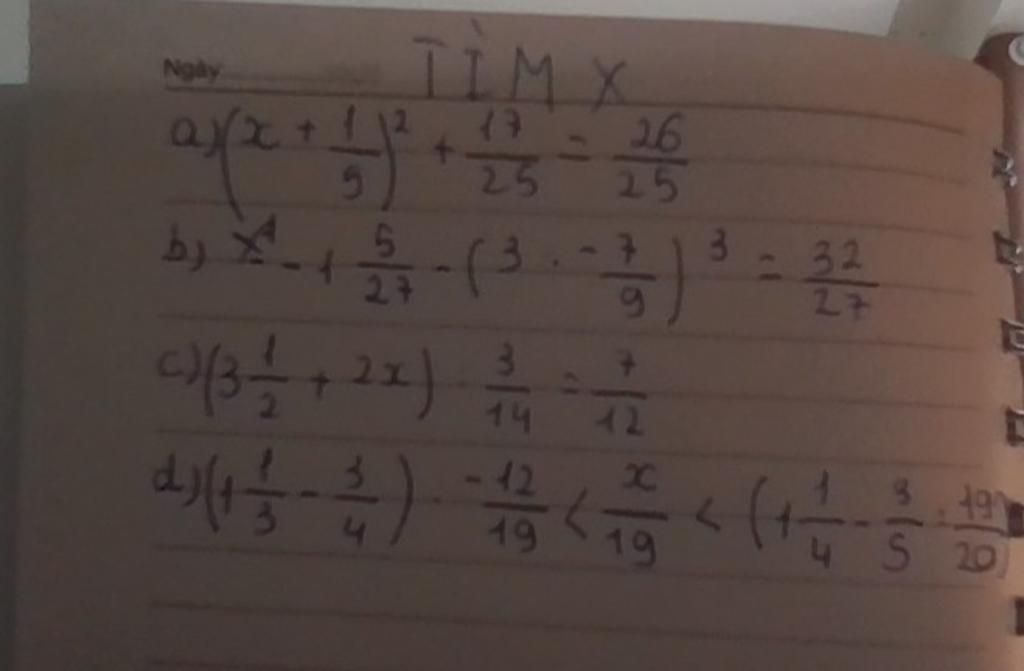 TÌM X
Ngày
a) (x + 1/5)² + 17/25 = 26/25
b) - 1 5/27 - (3 · -7/9)³ = 32/27
c) (3 1/2 + 2x) · 3/14 = 7/12
d) (1 1/3 - 3/4) · -12/19 < x/19 < (1 1/4 - 3/5 : 19/20)